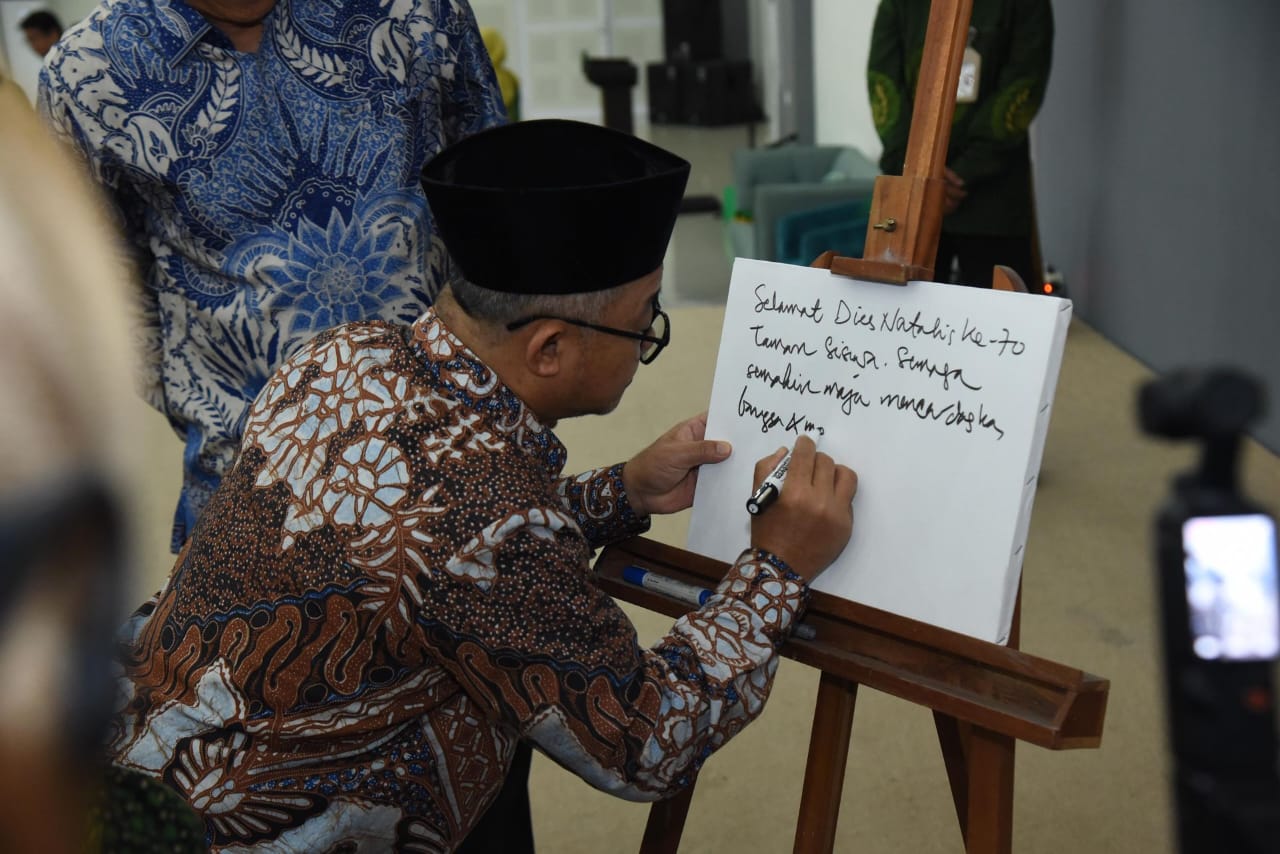 Selamat Dies Natalis Ke-70
Taman Siswa. Semoga
semakin maju mencerdaskan
bangsa & mo